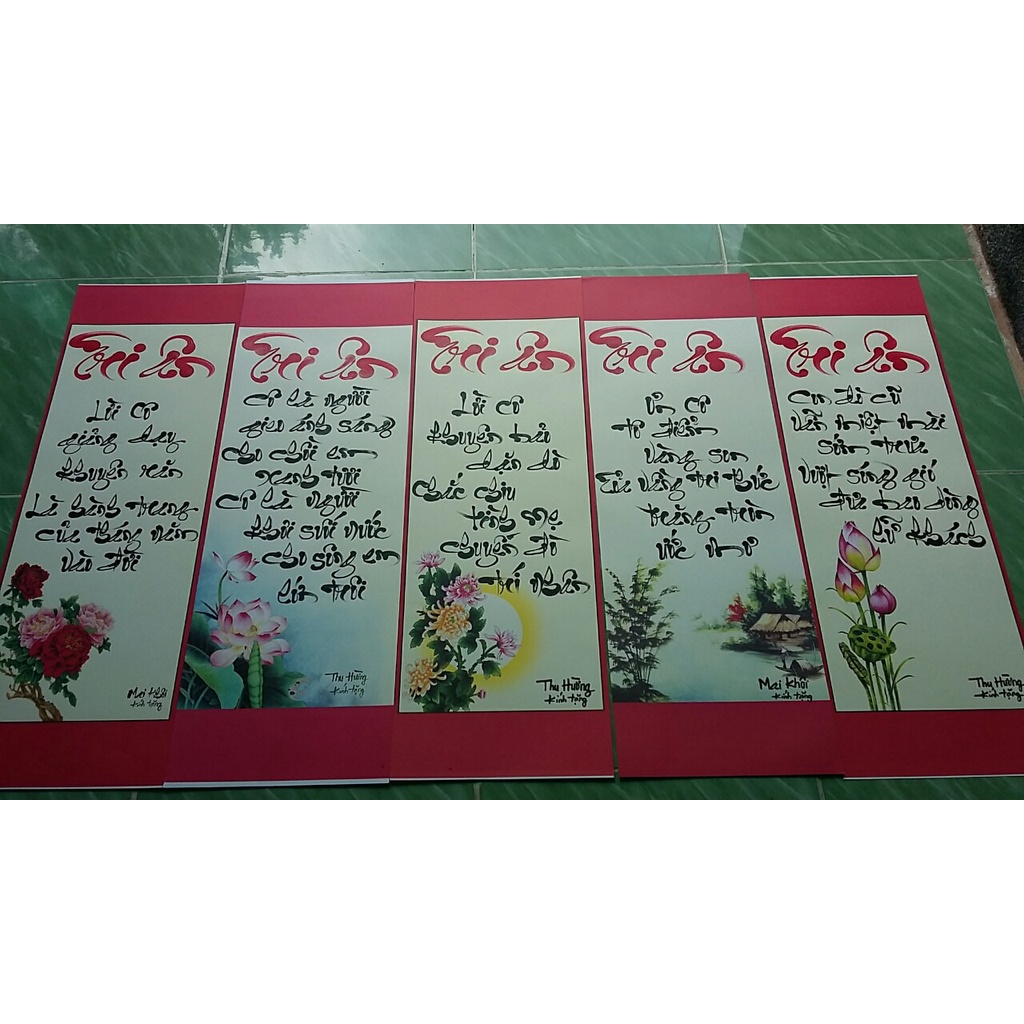 Tri Ân
Lời cô
giảng dạy
khuyên răn
Là hành trang
của tháng năm
vào đời
Mai Khôi
kính tặng
Tri Ân
Cô là người
gieo ánh sáng
cho chồi em
xanh tươi
Cô là người
khơi suối nước
cho sông em
Thu Hường
kính tặng
Tri Ân
Lời cô
khuyên bảo
dặn dò
Chắc chiu
tình mẹ
chuyến đò
trí nhân
Thu Hường
kính tặng
Tri Ân
Ơn cô
tô điểm
vàng son
Của vầng tri thức
trăng tròn
ước mơ
Mai Khôi
kính tặng
Tri Ân
Con đò cũ
vẫn miệt mài
sớm trưa
Vượt sóng gió
đưa bao dòng
lữ khách
Thu Hường
kính tặng